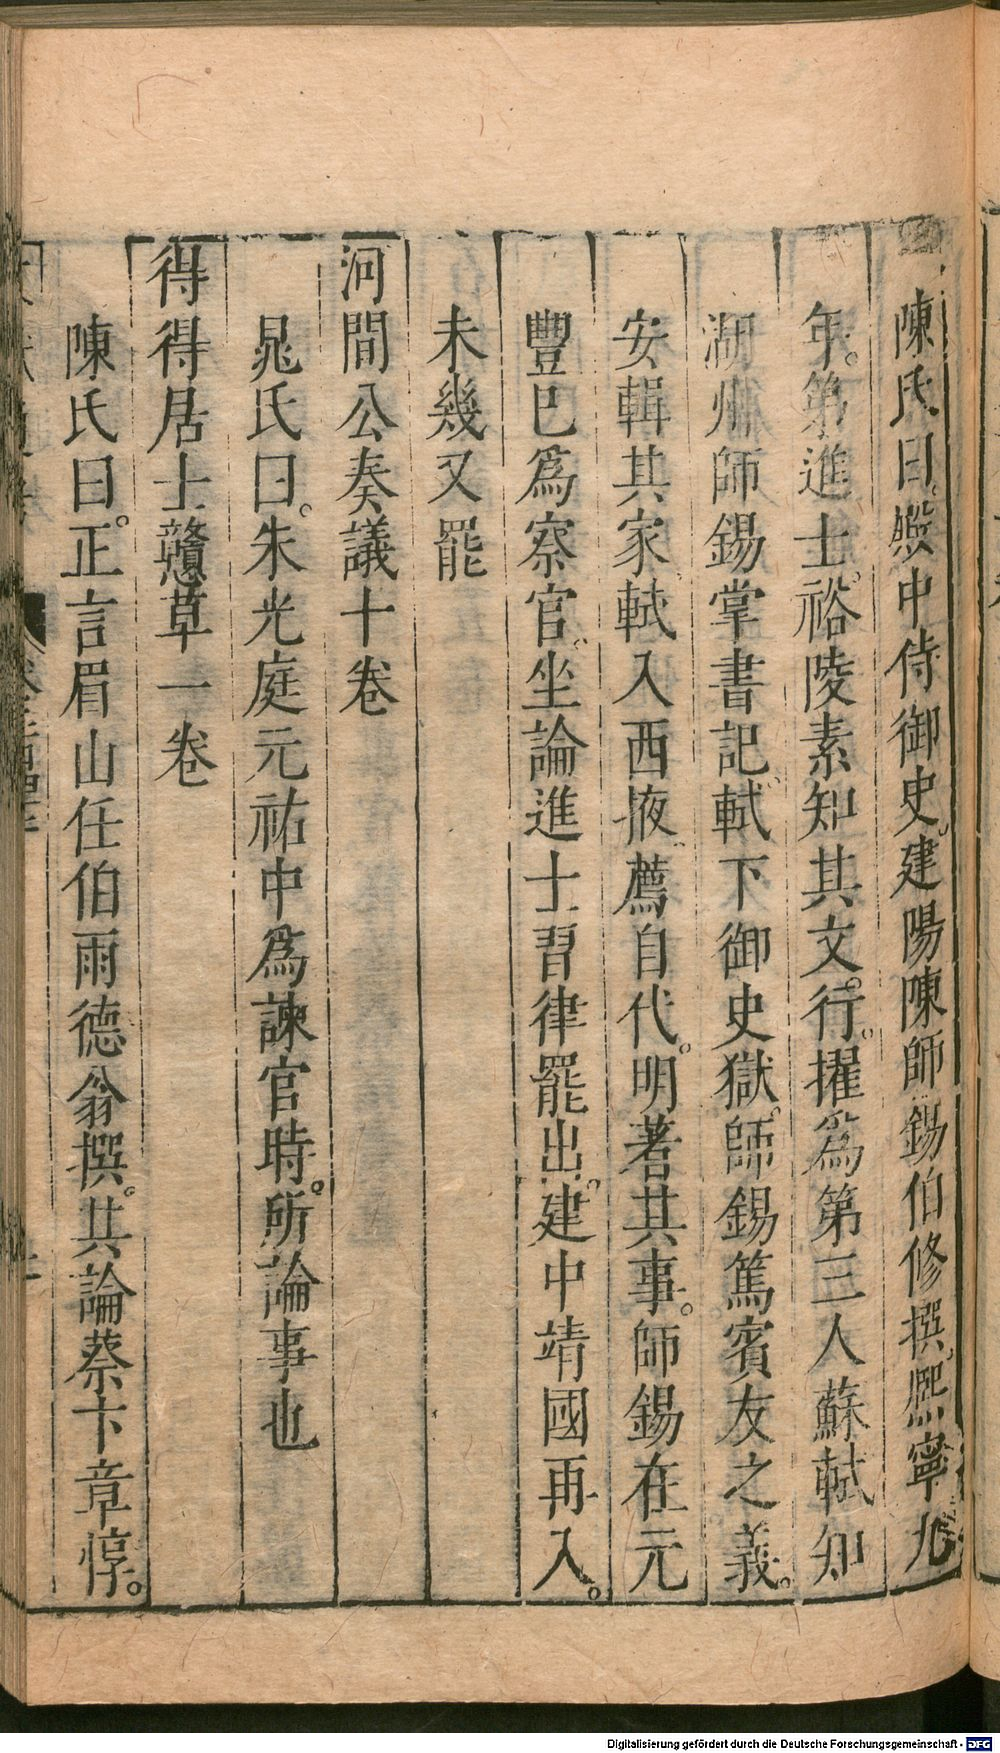 陳氏曰。殿中侍御史建陽陳師錫伯修撰。熙寧九
年。第進士。裕陵素知其文。行。擢爲第三人蘇軾知
湖州師錫掌書記。軾下御史獄。師錫篤賓友之義。
安輯其家軾入西掖。薦自代。明著其事。師錫在元
豐已爲察官。坐論進士習律罷出。建中靖國再入。
未幾又罷
河間公奏議十卷
晁氏曰。朱光庭元祐中爲諫官時。所論事也
得得居士戇草一卷
陳氏曰。正言眉山任伯雨德翁撰。其論蔡卞章惇。
Digitalisierung gefördert durch die Deutsche Forschungsgemeinschaft - DFG